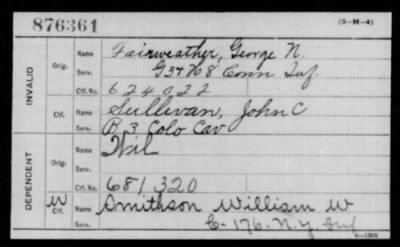 876361
(3-H-4)
INVALID
Orig.
Name Fairweather, George N.
Serv. G 37 & 8 Conn Inf.
Ctf. No. 624022
Ctf.
Name Sullivan, John C
Serv. B 3 Colo Cav
DEPENDENT
Orig.
Name Nil
Serv.
Ctf. No. 681320
W
Ctf.
Name Smithson William W
Serv. C-176-N.Y. Inf